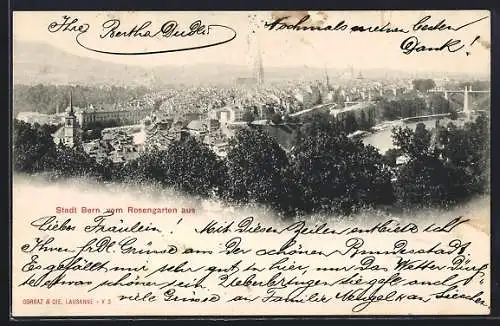 Ihre Bertha Dudli
Nochmals meinen besten
Dank!
Stadt Bern vom Rosengarten aus
Liebes Fräulein! Mit diesen Zeilen entbiete ich
Ihnen frdl. Grüsse aus der schönen Bundesstadt.
Es gefällt mir sehr gut in hier, nur das Wetter dürf
te etwas schöner sein. Ueberbringen sie gefl. auch
viele Grüsse an Familie
CORBAZ & CIE, LAUSANNE - V 3